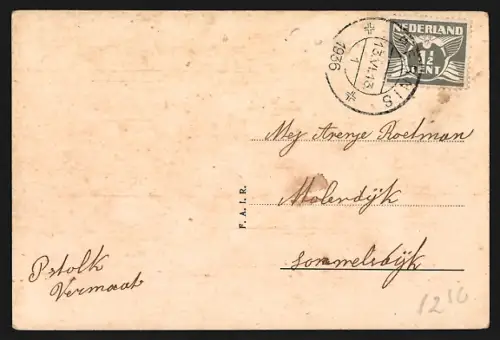 NEDERLAND
1½
CENT
13.VI.13
1
1936
Mej Arenje Roetman
Molendijk
Sommelsdijk
F. A. I. R.
P Stolk
Vermaat
1210